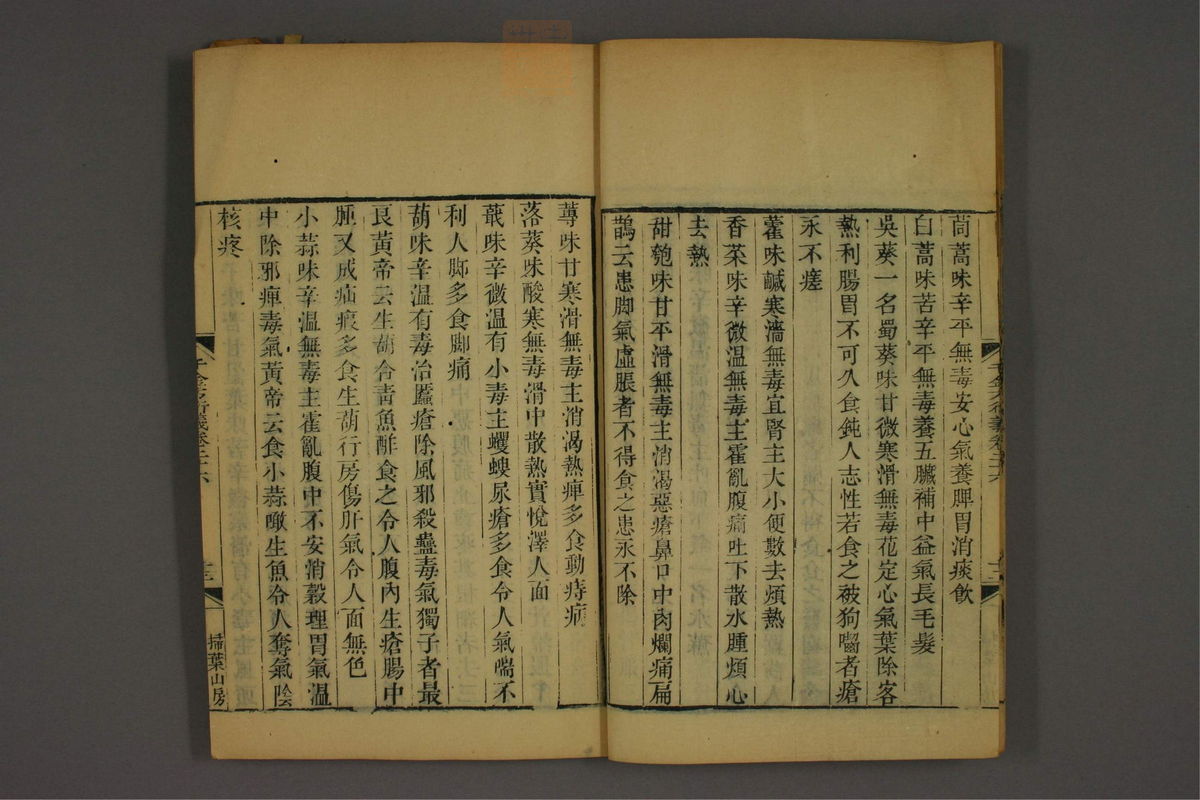 茼蒿味辛平無毒安心氣養脾胃消痰飲
白蒿味苦辛平無毒養五臟補中益氣長毛髮
吳葵一名蜀葵味甘微寒滑無毒花定心氣葉除客
熱利腸胃不可久食鈍人志性若食之被狗嚙者瘡
永不瘥
藿味鹹寒濇無毒宜腎主大小便數去煩熱
香菜味辛微溫無毒主霍亂腹痛吐下散水腫煩心
去熱
甜瓠味甘平滑無毒主消渴惡瘡鼻口中肉爛痛扁
鵲云患脚氣虛脹者不得食之患永不除
蓴味甘寒滑無毒主消渴熱痺多食動痔病
落葵味酸寒無毒滑中散熱實悅澤人面
蕺味辛微溫有小毒主蠼螋尿瘡多食令人氣喘不
利人脚多食脚痛
葫味辛溫有毒治䘌瘡除風邪殺蠱毒氣獨子者最
良黃帝云生葫合青魚鮓食之令人腹內生瘡腸中
腫又成疝瘕多食生葫行房傷肝氣令人面無色
小蒜味辛溫無毒主霍亂腹中不安消穀理胃氣溫
中除邪痺毒氣黃帝云食小蒜噉生魚令人奪氣陰
核疼
千金方衍義卷二十六
十三
掃葉山房